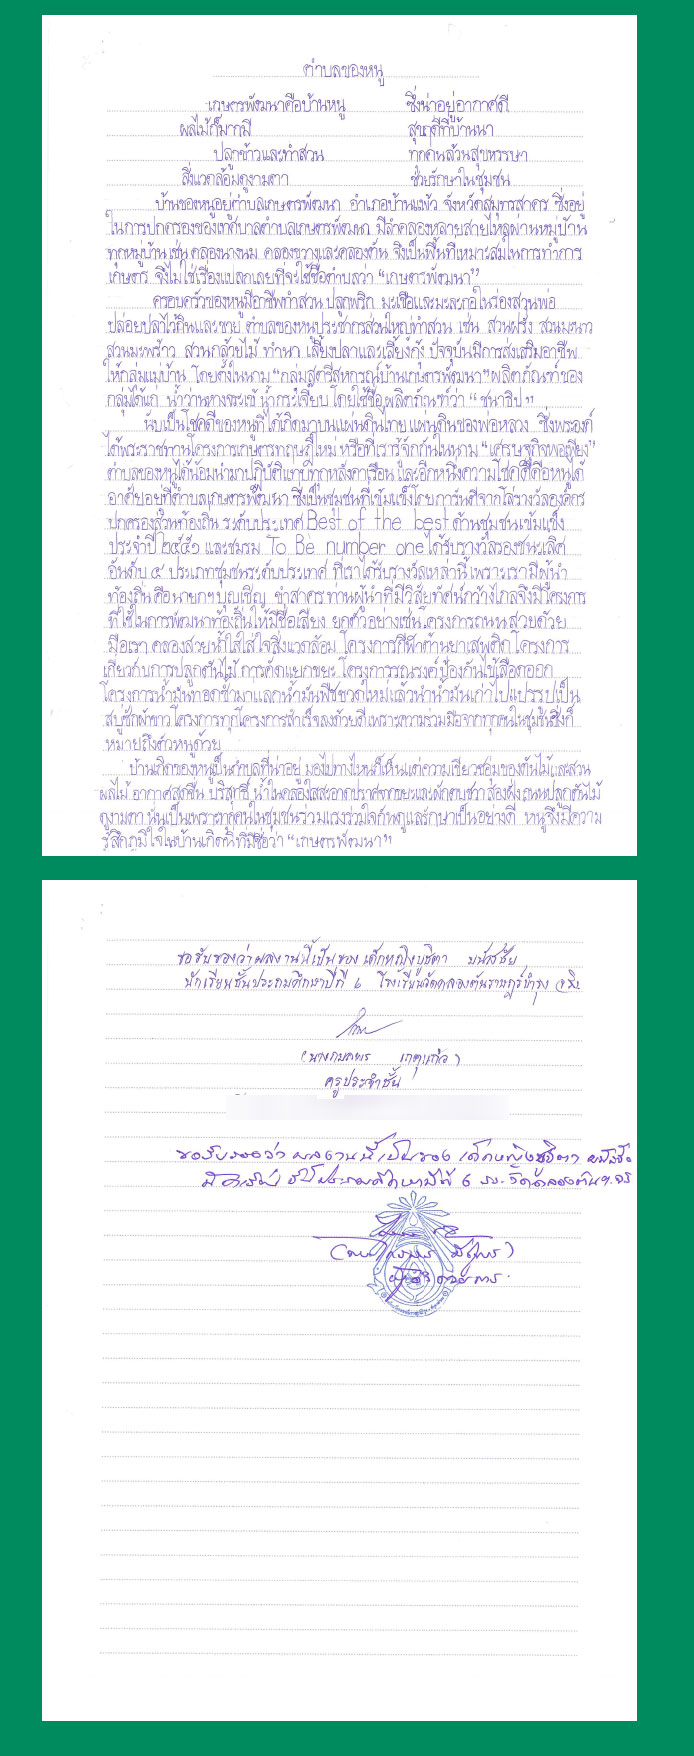 ตำบลของหนู
เกษตรพัฒนาคือบ้านหนู ซึ่งน่าอยู่อากาศดี
ผลไม้ก็มากมี สุขฤดีที่บ้านนา
ปลูกข้าวและทำสวน ทุกคนล้วนสุขหรรษา
สิ่งแวดล้อมดูงามตา ช่วยรักษาในชุมชน
บ้านของหนูอยู่ตำบลเกษตรพัฒนา อำเภอบ้านแพ้ว จังหวัดสมุทรสาคร ซึ่งอยู่
ในการปกครองของเทศบาลตำบลเกษตรพัฒนา มีลำคลองหลายสายไหลผ่านหมู่บ้าน
ทุกหมู่บ้าน เช่น คลองนางนม คลองขวางและคลองตัน จึงเป็นพื้นที่เหมาะสมในการทำการ
เกษตร จึงไม่ใช่เรื่องแปลกเลยที่จะใช้ชื่อตำบลว่า “เกษตรพัฒนา”
ครอบครัวของหนูมีอาชีพทำสวน ปลูกพริก มะเขือและมะละกอในร่องสวนพ่อ
ปล่อยปลาไว้กินและขาย ตำบลของหนูประชากรส่วนใหญ่ทำสวน เช่น สวนฝรั่ง สวนมะนาว
สวนมะพร้าว สวนกล้วยไม้ ทำนา เลี้ยงปลาและเลี้ยงกุ้ง ปัจจุบันมีการส่งเสริมอาชีพ
ให้กลุ่มแม่บ้าน โดยตั้งในนาม “กลุ่มสตรีสหกรณ์บ้านเกษตรพัฒนา” ผลิตภัณฑ์ของ
กลุ่มได้แก่ น้ำว่านหางจระเข้ น้ำกระเจี๊ยบ โดยใช้ชื่อผลิตภัณฑ์ว่า “ชนาธิป”
นับเป็นโชคดีของหนูที่ได้เกิดมาบนแผ่นดินไทย แผ่นดินของพ่อหลวง ซึ่งพระองค์
ได้พระราชทานโครงการเกษตรทฤษฎีใหม่ หรือที่เรารู้จักกันในนาม “เศรษฐกิจพอเพียง”
ตำบลของหนูได้น้อมนำมาปฏิบัติแทบทุกหลังคาเรือน และอีกหนึ่งความโชคดีคือหนูได้
อาศัยอยู่ที่ตำบลเกษตรพัฒนา ซึ่งเป็นชุมชนที่เข้มแข็งโดยการันตีจากโล่รางวัลองค์กร
ปกครองส่วนท้องถิ่น ระดับประเทศ Best of the best ด้านชุมชนเข้มแข็ง
ประจำปี ๒๕๕๑ และชมรม To Be number one ได้รับรางวัลรองชนะเลิศ
อันดับ ๔ ประเภทชุมชนระดับประเทศ ที่เราได้รับรางวัลเหล่านี้ เพราะเรามีผู้นำ
ท้องถิ่น คือ นายกฯ บุญเชิญ ขำสาคร ท่านผู้นำที่มีวิสัยทัศน์กว้างไกลจึงมีโครงการ
ที่ใช้ในการพัฒนาท้องถิ่นให้มีชื่อเสียง ยกตัวอย่างเช่นโครงการถนนสวยด้วย
มือเรา คลองสวยน้ำใสใส่ใจสิ่งแวดล้อม โครงการกีฬาต้านยาเสพติด โครงการ
เกี่ยวกับการปลูกต้นไม้ การคัดแยกขยะ โครงการรณรงค์ป้องกันไข้เลือดออก
โครงการน้ำมันทอดซ้ำมาแลกน้ำมันพืชขวดใหม่แล้วนำน้ำมันเก่าไปแปรรูปเป็น
สบู่ซักผ้าขาว โครงการทุกโครงการสำเร็จลงด้วยดีเพราะความร่วมมือจากทุกคนในชุมชนซึ่งก็
หมายถึงตัวหนูด้วย
บ้านเกิดของหนูเป็นตำบลที่น่าอยู่ มองไปทางไหนก็เห็นแต่ความเขียวชอุ่มของต้นไม้และสวน
ผลไม้ อากาศสดชื่น บริสุทธิ์ น้ำในคลองใสสะอาดปราศจากขยะและผักตบชวา สองฝั่งถนนปลูกต้นไม้
ดูงามตา นั่นเป็นเพราะทุกคนในชุมชนร่วมแรงร่วมใจกันดูแลรักษาเป็นอย่างดี หนูจึงมีความ
รู้สึกภูมิใจในบ้านเกิดนี้ที่มีชื่อว่า “เกษตรพัฒนา”
ขอรับรองว่าผลงานนี้เป็นของ เด็กหญิง
นักเรียนชั้นประถมศึกษาปีที่ ๖ โรงเรียนวัดคลองตันราษฎร์บำรุง จริง
ครูประจำชั้น
ขอรับรองว่า ผลงานนี้ เป็นของ เด็กหญิง
ชั้นประถมศึกษาปีที่ ๖ รร. วัดคลองตันฯ จริง
ผู้อำนวยการ